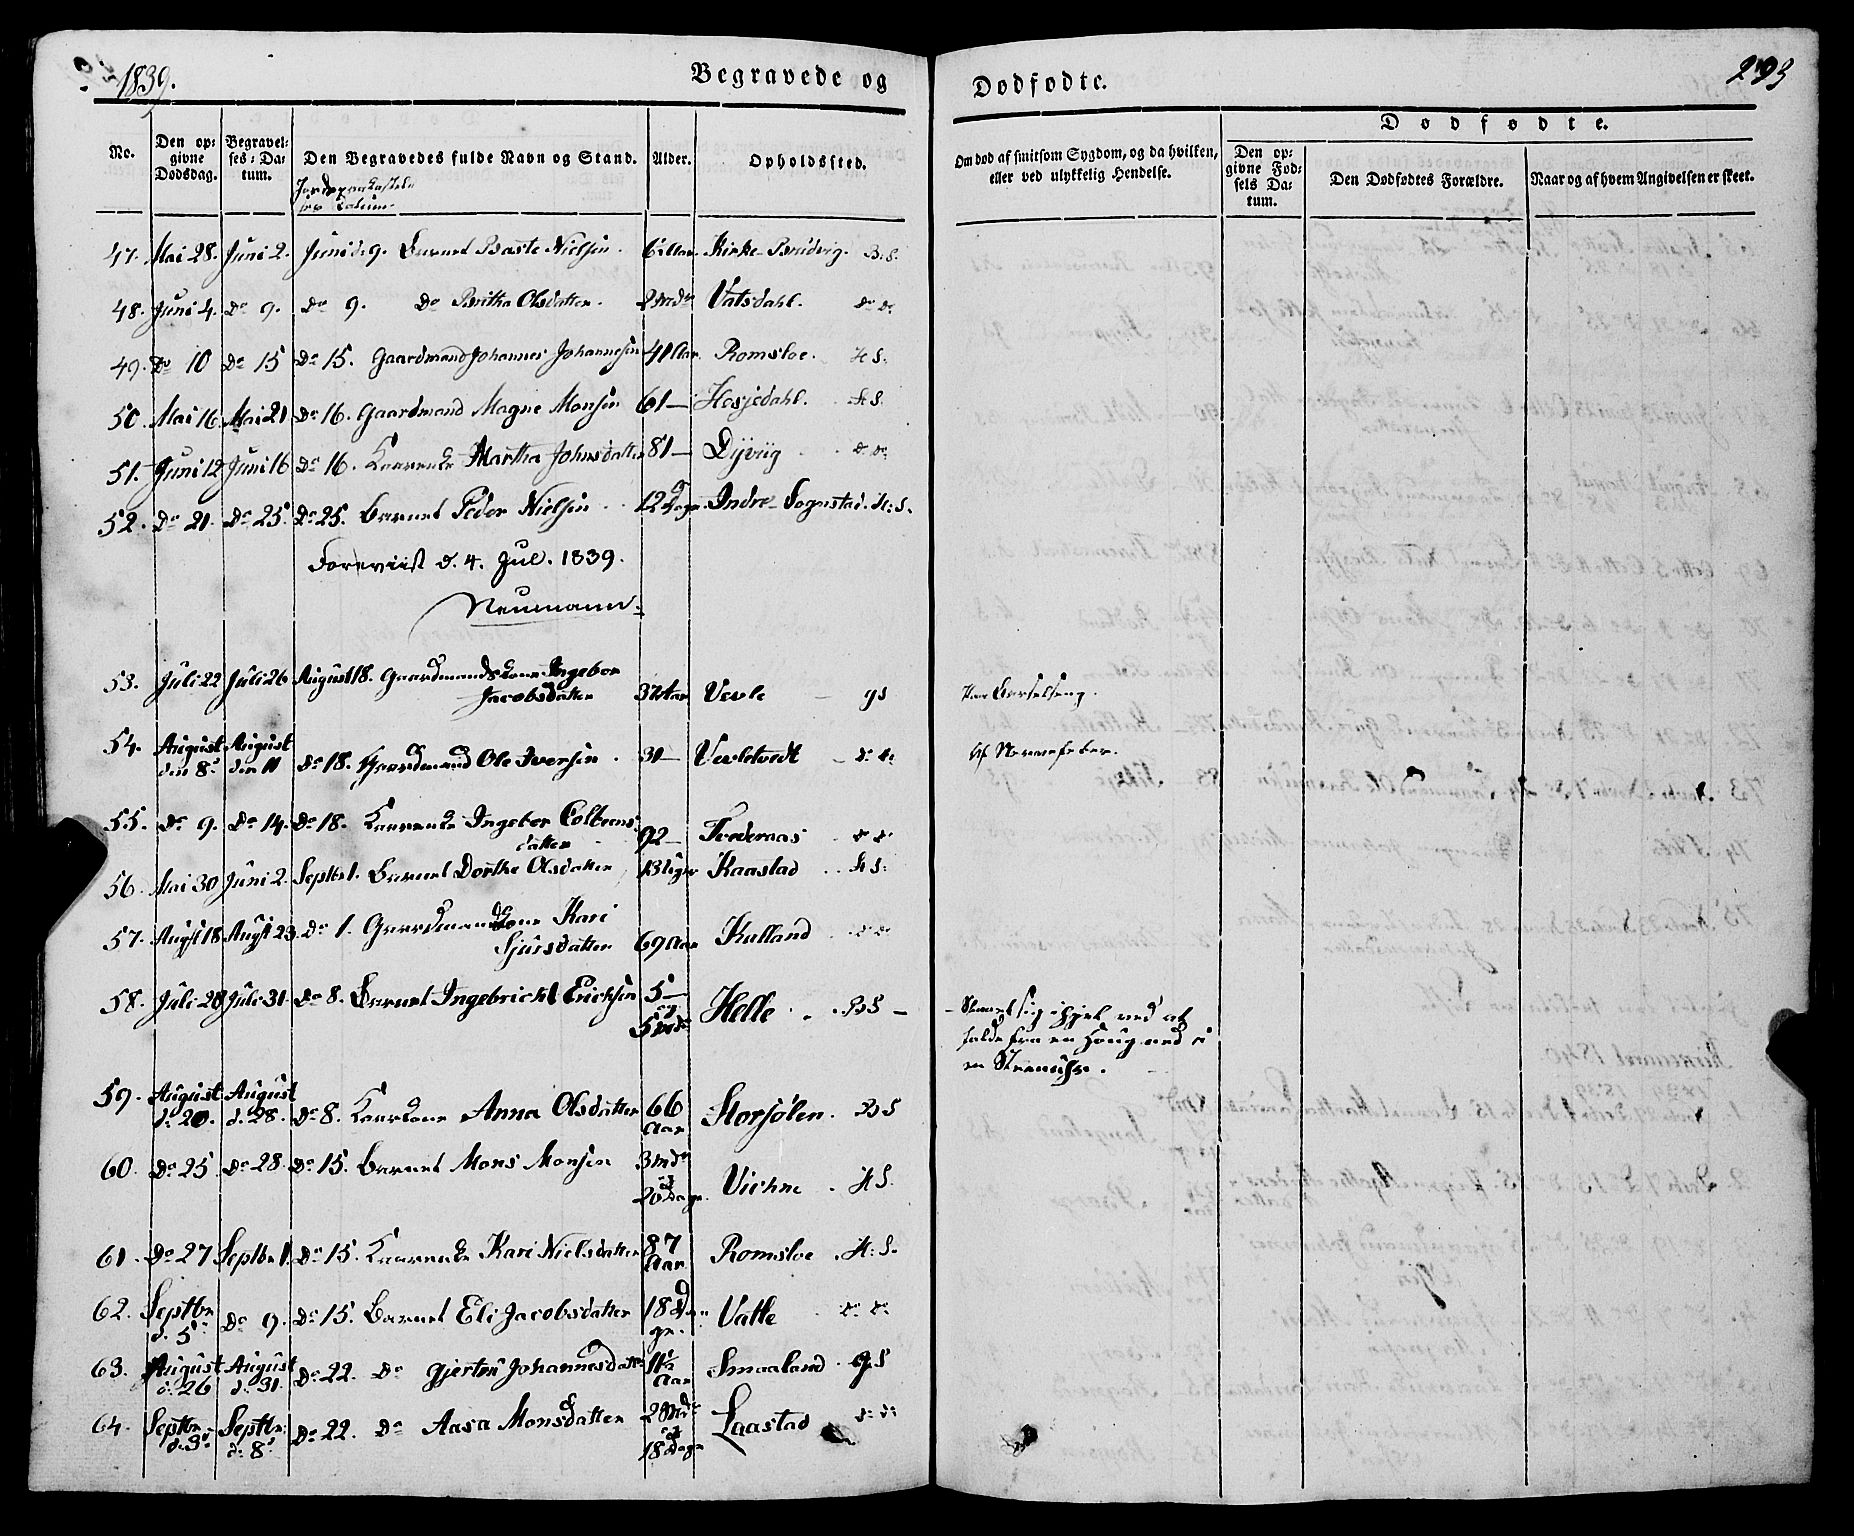 1839.
Begravede og
Dødfødte.
293
No.
Den opgivne Dødsdag.
Begravelses-Datum.
Den Begravedes fulde Navn og Stand.
Alder.
Opholdssted.
Om død af smitsom Sygdom, og da hvilken, eller ved ulykkelig Hendelse.
Dødfødte.
Den opgivne Fødsels Datum.
Den Dødfødtes Forældre.
Naar og af hvem Angivelsen er skeet.
Jordspaakastelse
47. Mai 28. Juni 2. Juni d. 9. Barnet Baste Nielsen. 6 Aar. Kirke-Brudvig. B.S.
48. Juni 4. Do 9. Do 9. Do Britha Olsdatter. 2 Mdr Vatsdahl. do do
49. Do 10 Do 15 Do 15. Gaardmand Johannes Johannesen 41 Aar. Romsloe. H S.
50. Mai 16 Mai 21 Do 16. Gaardmand Magne Monsen 61— Hesjedahl. H S.
51. Juni 12 Juni 16 Do 16. Kaarenke Martha Johnsdatter 81— Dyviig do do
52. Do 21. Do 25. Do 25. Barnet Peder Nielsen 12 Dage. Indre-Sognstad. H.S.
Foreviist d. 4. Jul. 1839.
Neumann.
53. Juli 22 Juli 26 August 18. Gaardmandskone Ingebor
Jacobsdatter 37 Aar Vevle gS Paa Barselseng.
54. August den 8de August den 11 Do 18. Gaardmand Ole Iversen. 31— Vevletvedt do do Af Nervefeber.
55. Do 9. Do 14. Do 18. Kaarenke Ingebor Colbens-
datter 92— Tvederaas do do
56. Mai 30 Juni 2. Septbr 1. Barnet Dorthe Olsdatter 13 Uger Kaastad H S.
57. Augst 18 Augst 23. Do 1. Gaardmandskone Kari
Sjursdatter 69 Aar Kulland do do
58. Juli 28 Juli 31. Do 8. Barnet Ingebricht Erichsen 5— og 5 Mdr Helle B S — Slaaet sig ihjel ved at
falde fra en Houg ned i
en Steenuhr.
59. August d. 20. August d. 28. Do 8. Kaarkone Anna Olsdatter 66 Aar Storsølen. B S
60. Do 25 Do 28. Do 15. Barnet Mons Monsen 3 Mdr og 20 Dage. Viche H S.
61. Do 27 Septbr 1. Do 15. Kaarenke Kari Nielsdatter 87 Aar Romsloe H.S.
62. Septbr d. 5te Do 9. Do 15. Barnet Eli Jacobsdatter 18 Dage. Vatle do do
63. August d. 26 August d. 31. Do 22. Do Gjertru Johannesdatter Aar Smaaland gS
64. Septbr d. 3de Septbr d. 8de Do 22. Do Aasa Monsdatter 2 Mdr og 18 Dage Laastad do do